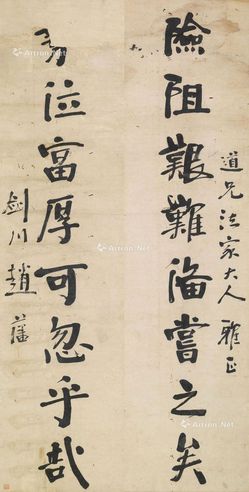 道兄法家大人雅正
險阻艱難備嘗之矣
勢位富厚可忽乎哉
劍川趙藩
Artron.Net